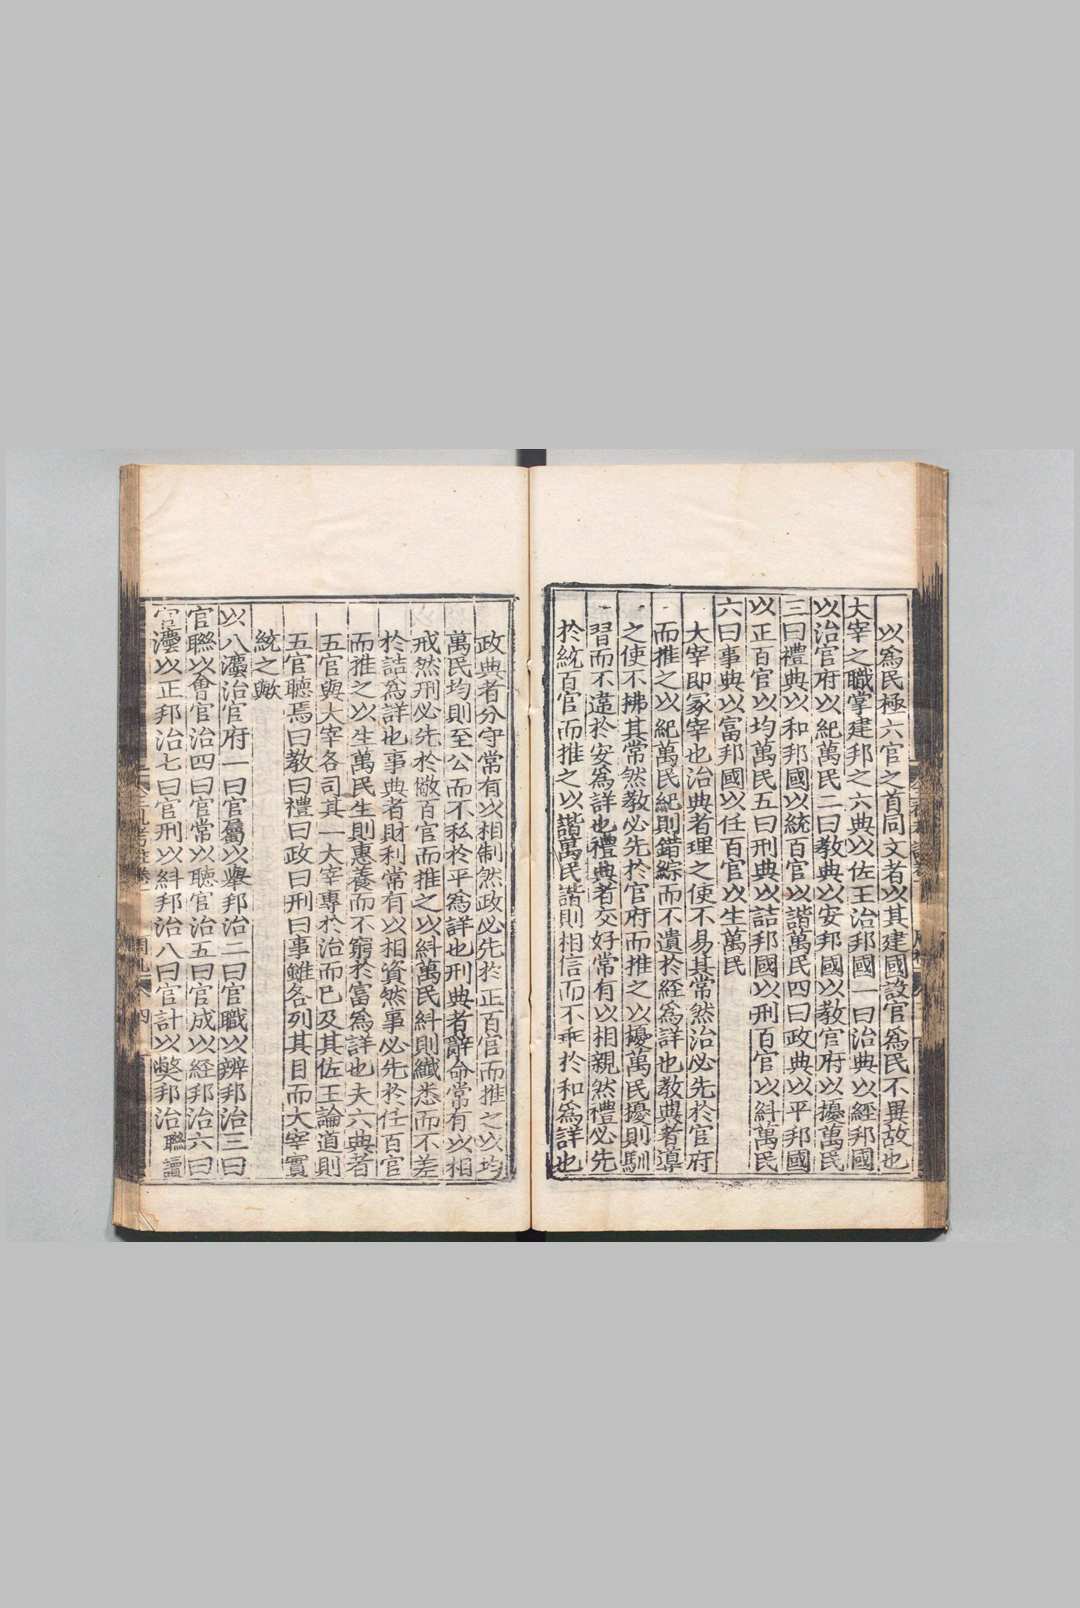 以爲民極六官之首同文者以其建國設官爲民不異故也
大宰之職掌建邦之六典以佐王治邦國一曰治典以經邦國
以治官府以紀萬民二曰教典以安邦國以教官府以擾萬民
三曰禮典以和邦國以統百官以諧萬民四曰政典以平邦國
以正百官以均萬民五曰刑典以詰邦國以刑百官以糾萬民
六曰事典以富邦國以任百官以生萬民
大宰即冢宰也治典者理之使不易其常然治必先於官府
而推之以紀萬民紀則錯綜而不遺於経爲詳也教典者導
之使不拂其常然教必先於官府而推之以擾萬民擾則馴
習而不違於安爲詳也禮典者交好常有以相親然禮必先
於統百官而推之以諧萬民諧則相信而不乖於和爲詳也
政典者分守常有以相制然政必先於正百官而推之以均
萬民均則至公而不私於平爲詳也刑典者辭命常有以相
戒然刑必先於儆百官而推之以糾萬民糾則纖悉而不差
於詰爲詳也事典者財利常有以相資然事必先於任百官
而推之以生萬民生則惠養而不窮於富爲詳也夫六典者
五官與大宰各司其一大宰專於治而已及其佐王論道則
五官聽焉曰教曰禮曰政曰刑曰事雖各列其目而大宰實
統之歟
以八灋治官府一曰官屬以舉邦治二曰官職以辨邦治三曰
官聯以會官治四曰官常以聴官治五曰官成以経邦治六曰
官灋以正邦治七曰官刑以糾邦治八曰官計以弊邦治 聯讀